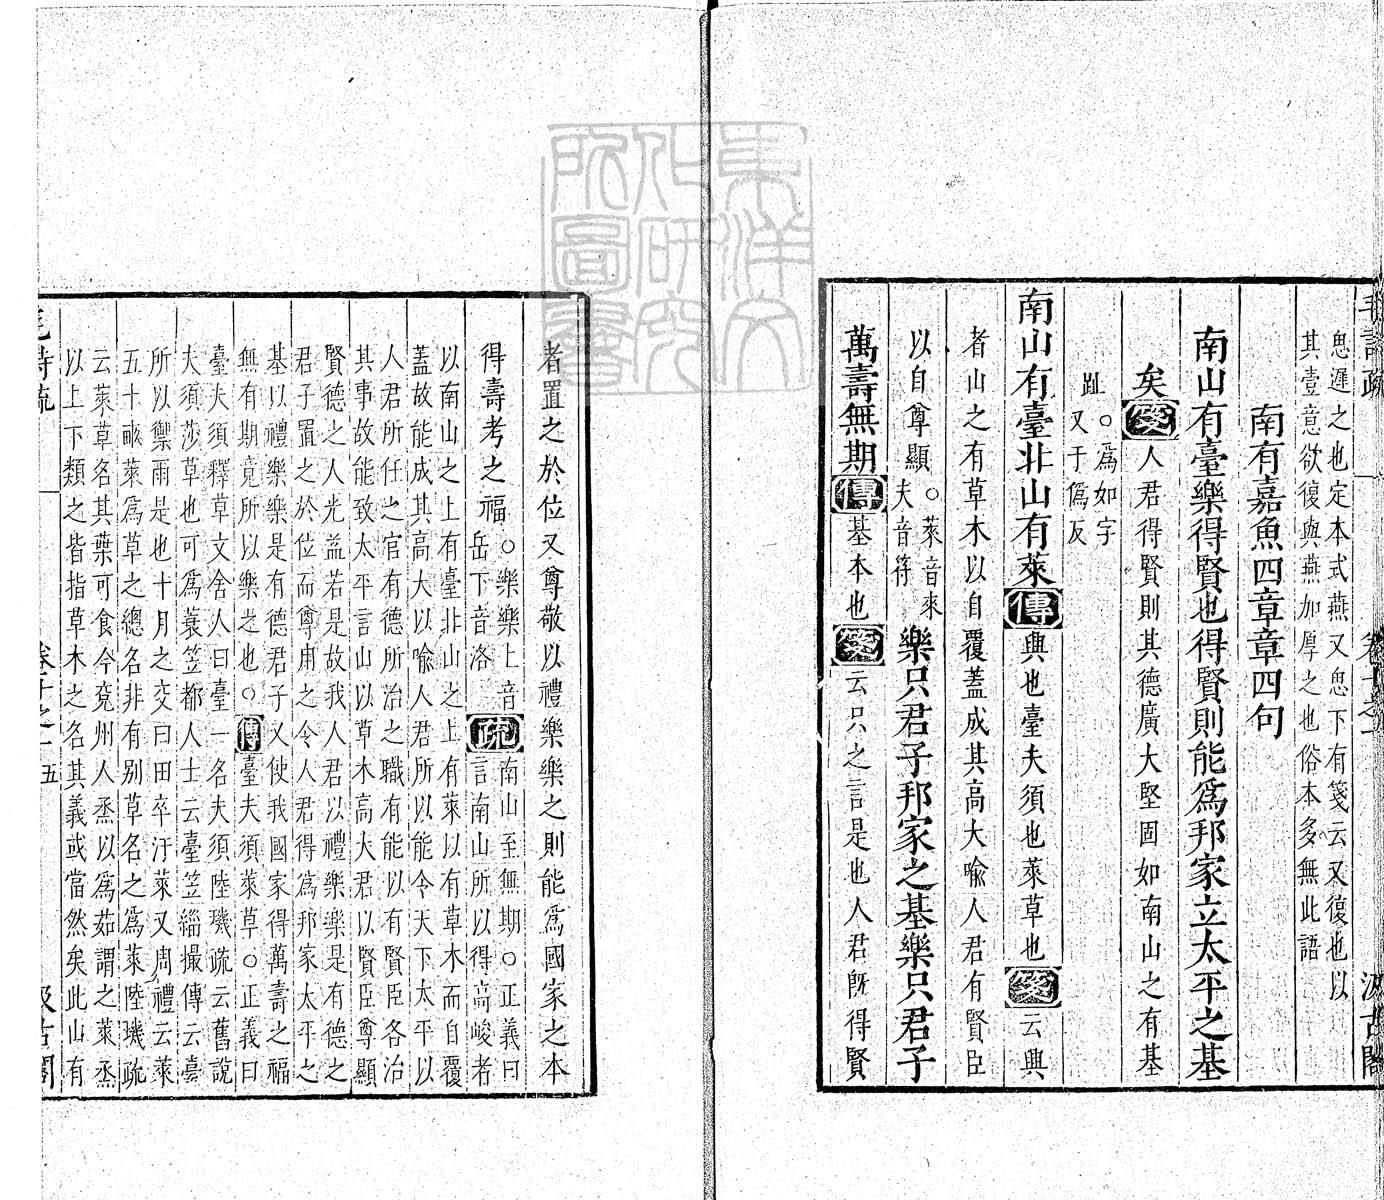 毛詩疏 卷十之一 汲古閣
思遲之也定本式燕又思下有箋云又復也以
其壹意欲復與燕加厚之也俗本多無此語
南有嘉魚四章章四句
南山有臺樂得賢也得賢則能爲邦家立太平之基
矣箋人君得賢則其德廣大堅固如南山之有基
趾○爲如字
又于僞反
南山有臺北山有萊傳興也臺夫須也萊草也箋云興
者山之有草木以自覆蓋成其高大喻人君有賢臣
以自尊顯○萊音來
夫音符
樂只君子邦家之基樂只君子
萬壽無期傳基本也箋云只之言是也人君旣得賢
者置之於位又尊敬以禮樂樂之則能爲國家之本
得壽考之福○樂樂上音
岳下音洛
疏南山至無期○正義曰
言南山所以得高峻者
以南山之上有臺北山之上有萊以有草木而自覆
蓋故能成其高大以喻人君所以能令天下太平以
人君所任之官有德所治之職有能以有賢臣各治
其事故能致太平言山以草木高大君以賢臣尊顯
賢德之人光益若是故我人君以禮樂樂是有德之
君子置之於位而尊用之令人君得爲邦家太平之
基以禮樂樂是有德君子又使我國家得萬壽之福
無有期竟所以樂之也○傳臺夫須萊草○正義曰
臺夫須釋草文舍人曰臺一名夫須陸璣疏云舊說
夫須莎草也可爲蓑笠都人士云臺笠緇撮傳云臺
所以禦雨是也十月之交曰田卒汙萊又周禮云萊
五十畝萊爲草之總名非有别草名之爲萊陸璣疏
云萊草名其葉可食今兗州人烝以爲茹謂之萊烝
以上下類之皆指草木之名其義或當然矣此山有
毛詩疏 卷十之一 五 汲古閣
東洋文化研究所圖書